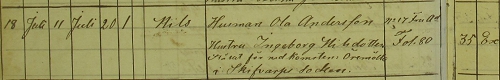 18 Juli 11 Juli 20 1 Nils Husman Ola Andersson No 17 Fru Ad
Hustru Ingeborg Nilsdotter Fol. 80 35 Ex
i Skifvarps Socken.